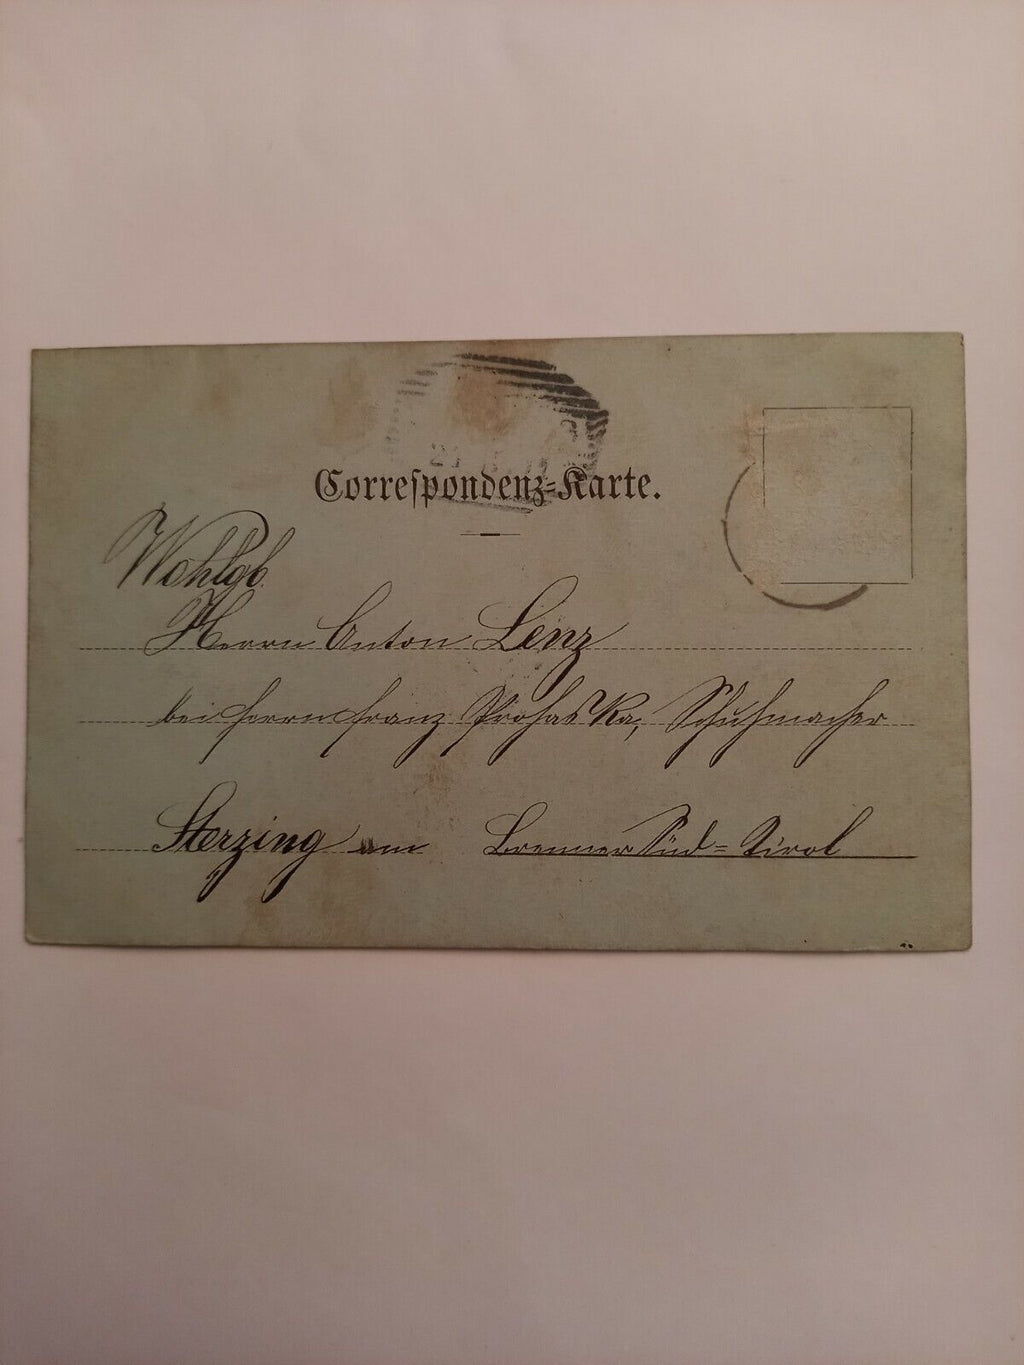 Correspondenz-Karte.
Wohlgb.
Herrn Anton Lenz
bei Herrn Franz Prohaska, Schuhmacher
Sterzing am Brenner Süd=Tirol